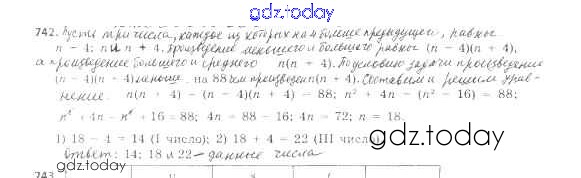 gdz.today
742. Пусть три числа, каждое из которых на 4 больше предыдущего, равное
n − 4; n и n + 4. Произведение меньшего и большего равное (n − 4)(n + 4),
а произведение большего и среднего n(n + 4). По условию задачи произведение
(n − 4)(n + 4) меньше на 88 чем произвели n(n + 4). Составим и решим урав-
нение. n(n + 4) − (n − 4)(n + 4) = 88; n² + 4n − (n² − 16) = 88;
n² + 4n − n² + 16 = 88; 4n = 88 − 16; 4n = 72; n = 18.
1) 18 − 4 = 14 (I число); 2) 18 + 4 = 22 (III число)
Ответ: 14; 18 и 22 – данные числа
gdz.today
743
gdz.today